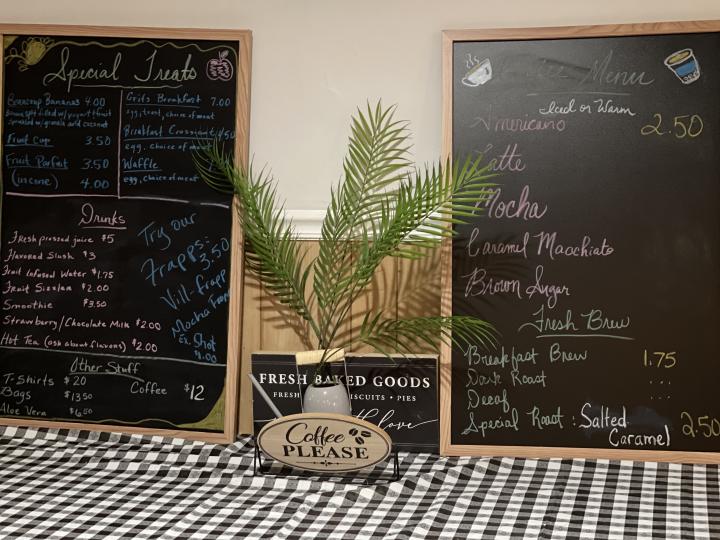 Special Treats
Bananas 4.00
w/yogurt fruit
w/granola and coconut
Fruit Cup 3.50
Fruit Parfait 3.50
(in cone) 4.00
Grits Breakfast 7.00
egg, toast, choice of meat
Breakfast
egg, choice of meat
Waffle
egg, choice of meat
Drinks
Fresh pressed juice $5
Flavored Slush $3
Fruit Infused Water $1.75
Fruit $2.00
Smoothie $3.50
Strawberry/Chocolate Milk $2.00
Hot Tea (ask about flavors) $2.00
Try our
Frapps: 3.50
Vill-Frapp
Mocha Frapp
Ex. Shot
Other Stuff
T-Shirts $20
Bags $13.50
Aloe Vera $6.50
Coffee $12
FRESH BAKED GOODS
FRESH BISCUITS • PIES
love
Coffee
PLEASE
Menu
Iced or Warm
Americano 2.50
Latte
Mocha
Caramel Maochiato
Brown Sugar
Fresh Brew
Breakfast Brew 1.75
Dark Roast
Decaf
Special Roast : Salted
Caramel 2.50